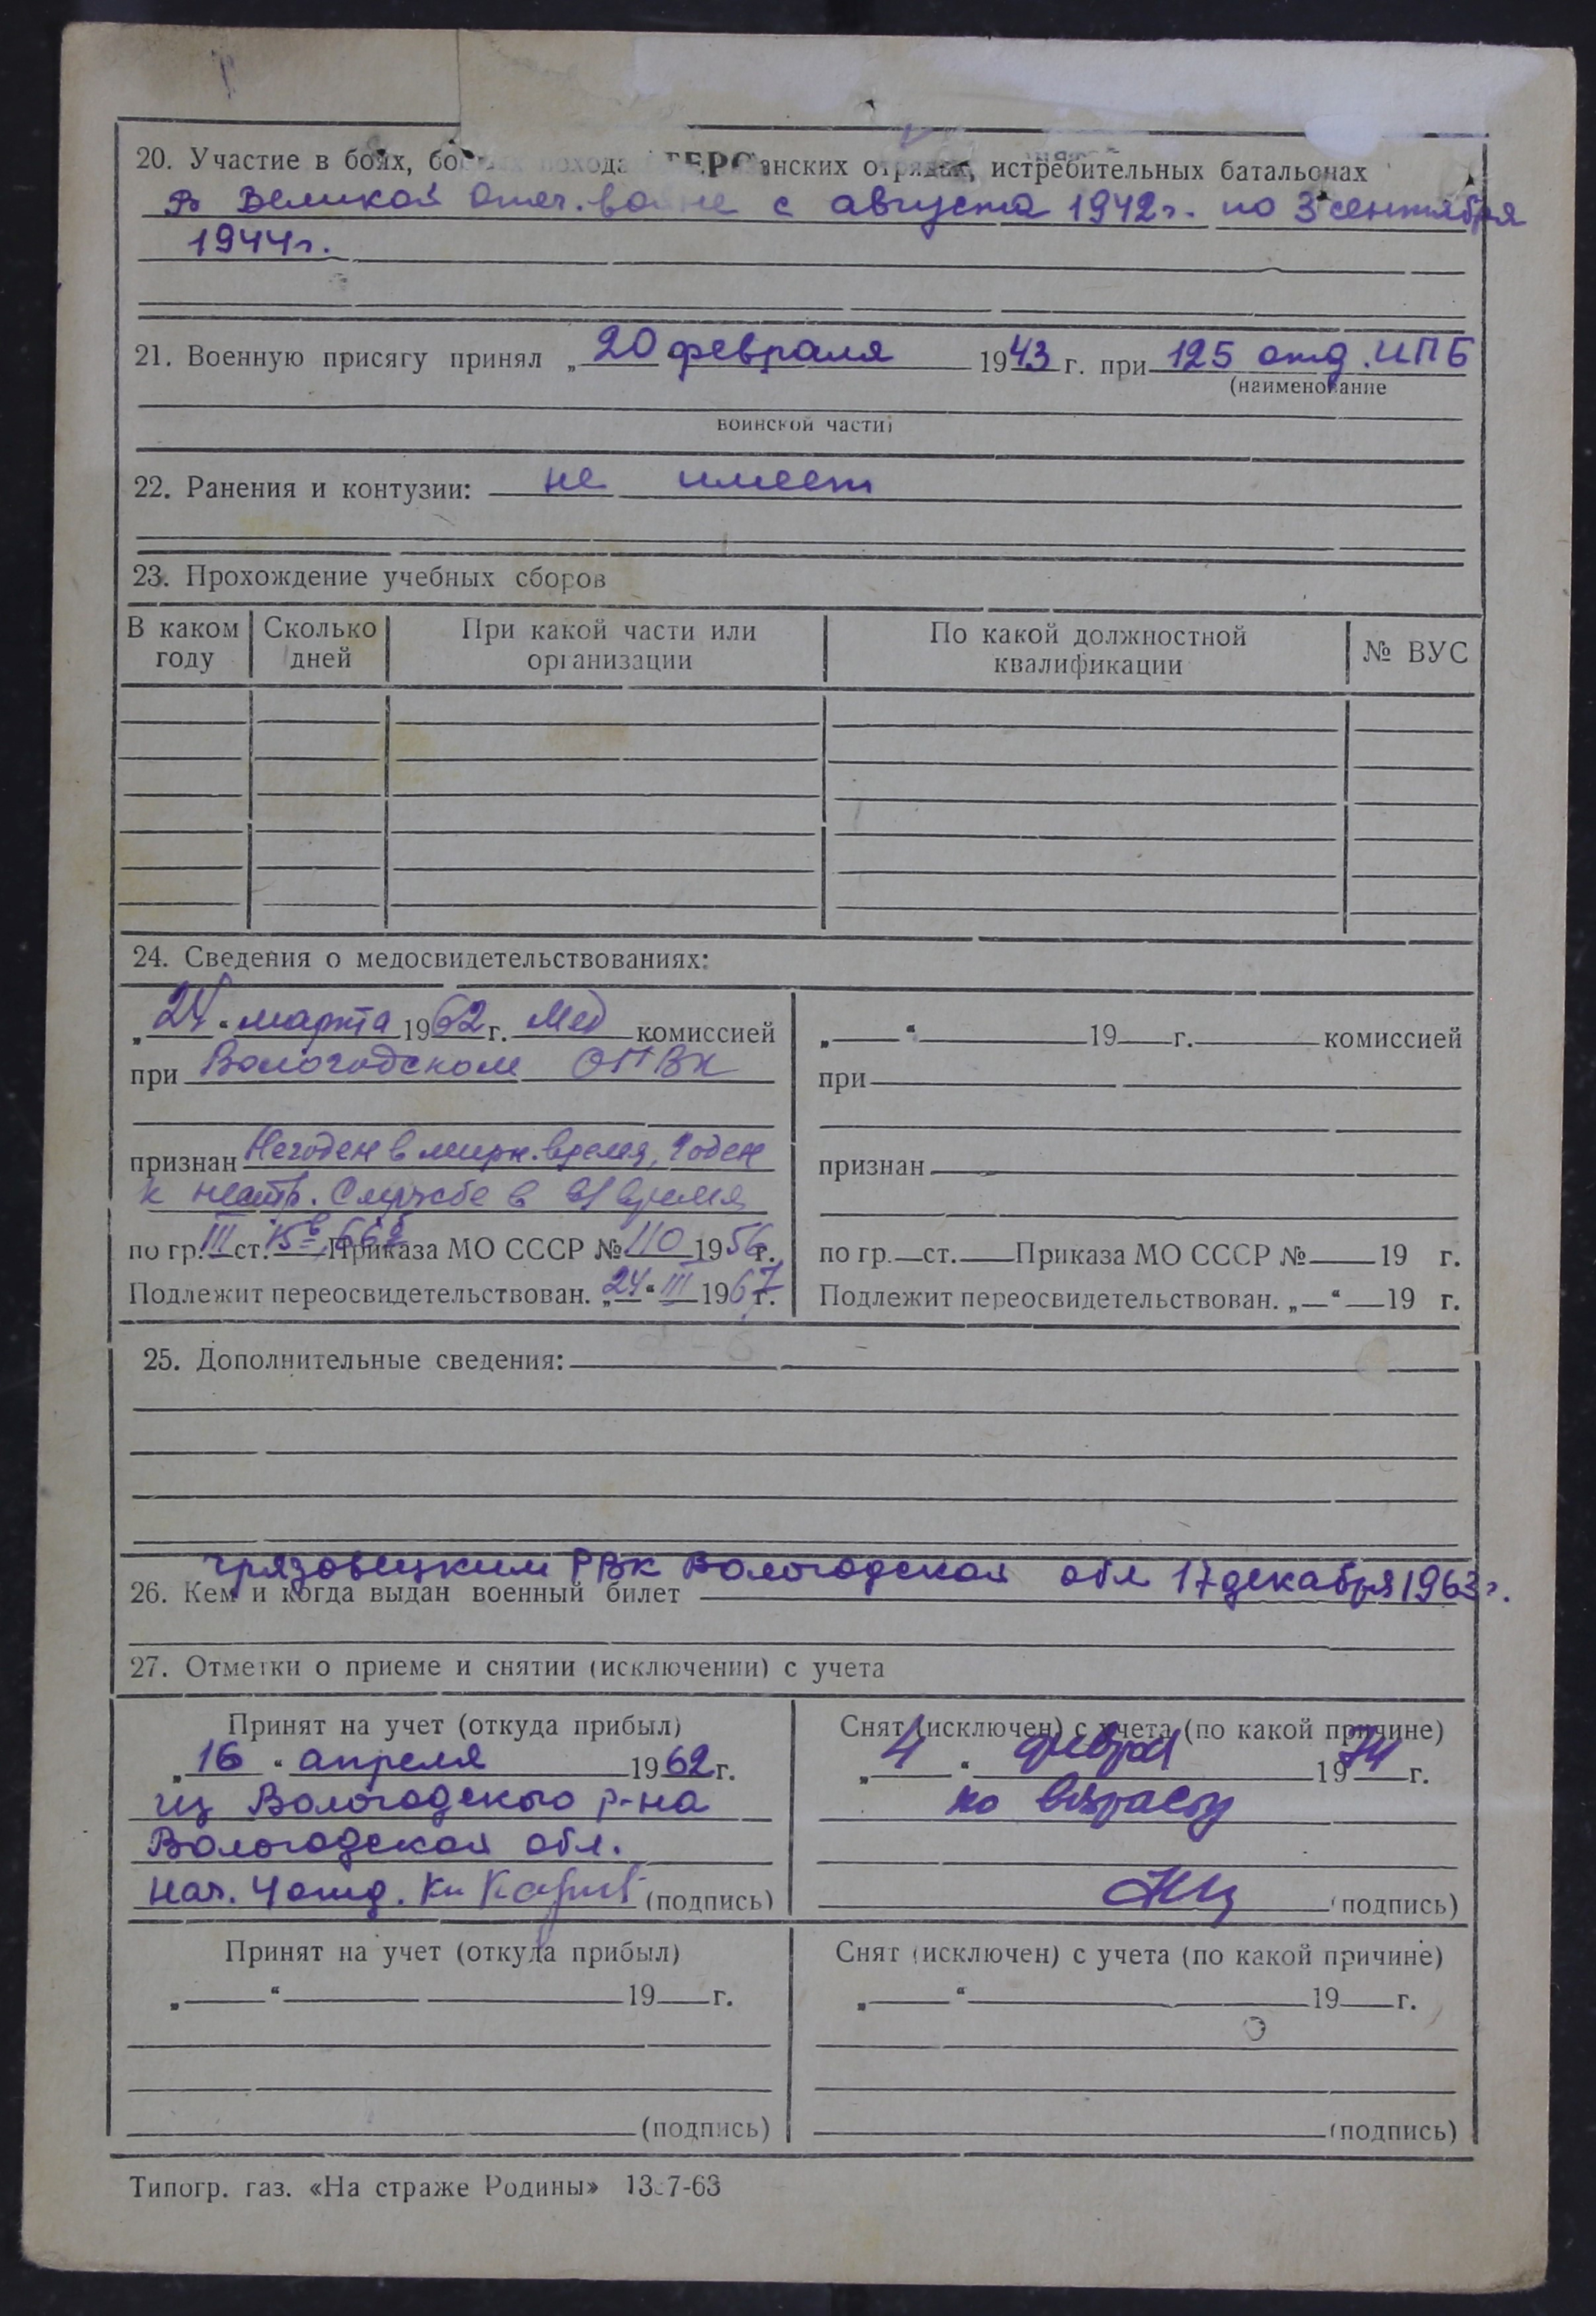 20. Участие в боях, отрядах, истребительных батальонах
В Великой Отеч. войне с августа 1942 г. по 3 сентября
1944 г.
21. Военную присягу принял „20 февраля 1943 г. при 125 отд. ИПБ
(наименование
воинской части)
22. Ранения и контузии: не имеет
23. Прохождение учебных сборов
В каком году
Сколько дней
При какой части или организации
По какой должностной квалификации
№ ВУС
24. Сведения о медосвидетельствованиях:
„24“ марта 1962 г. Мед комиссией
при Вологодском ОГВК
признан Негоден в мирн. время, Годен
к нестр. службе в в/время
по гр. III ст. Приказа МО СССР № 110 1956 г.
Подлежит переосвидетельствован. „24“ III 1967 г.
„ “ 19 г. комиссией
при
признан
по гр. ст. Приказа МО СССР № 19 г.
Подлежит переосвидетельствован. „ “ 19 г.
25. Дополнительные сведения:
Грязовецким РВК Вологодской обл 17 декабря 1963 г.
26. Кем и когда выдан военный билет
27. Отметки о приеме и снятии (исключении) с учета
Принят на учет (откуда прибыл)
„16“ апреля 1962 г.
из Вологодского р-на
Вологодской обл.
Нач. 4 отд. (подпись)
Снят (исключен) с учета (по какой причине)
„4“ 1974 г.
по возрасту
(подпись)
Принят на учет (откуда прибыл)
„ “ 19 г.
(подпись)
Снят (исключен) с учета (по какой причине)
„ “ 19 г.
(подпись)
Типогр. газ. «На страже Родины» 7-63